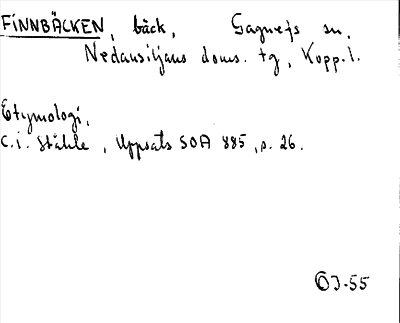 FINNBÄCKEN, bäck, Gagnefs sn,
Nedansiljans doms. tg, Kopp. l.
Etymologi,
C. I. Ståhle, Uppsats SOA 885, s. 26.
OJ-55